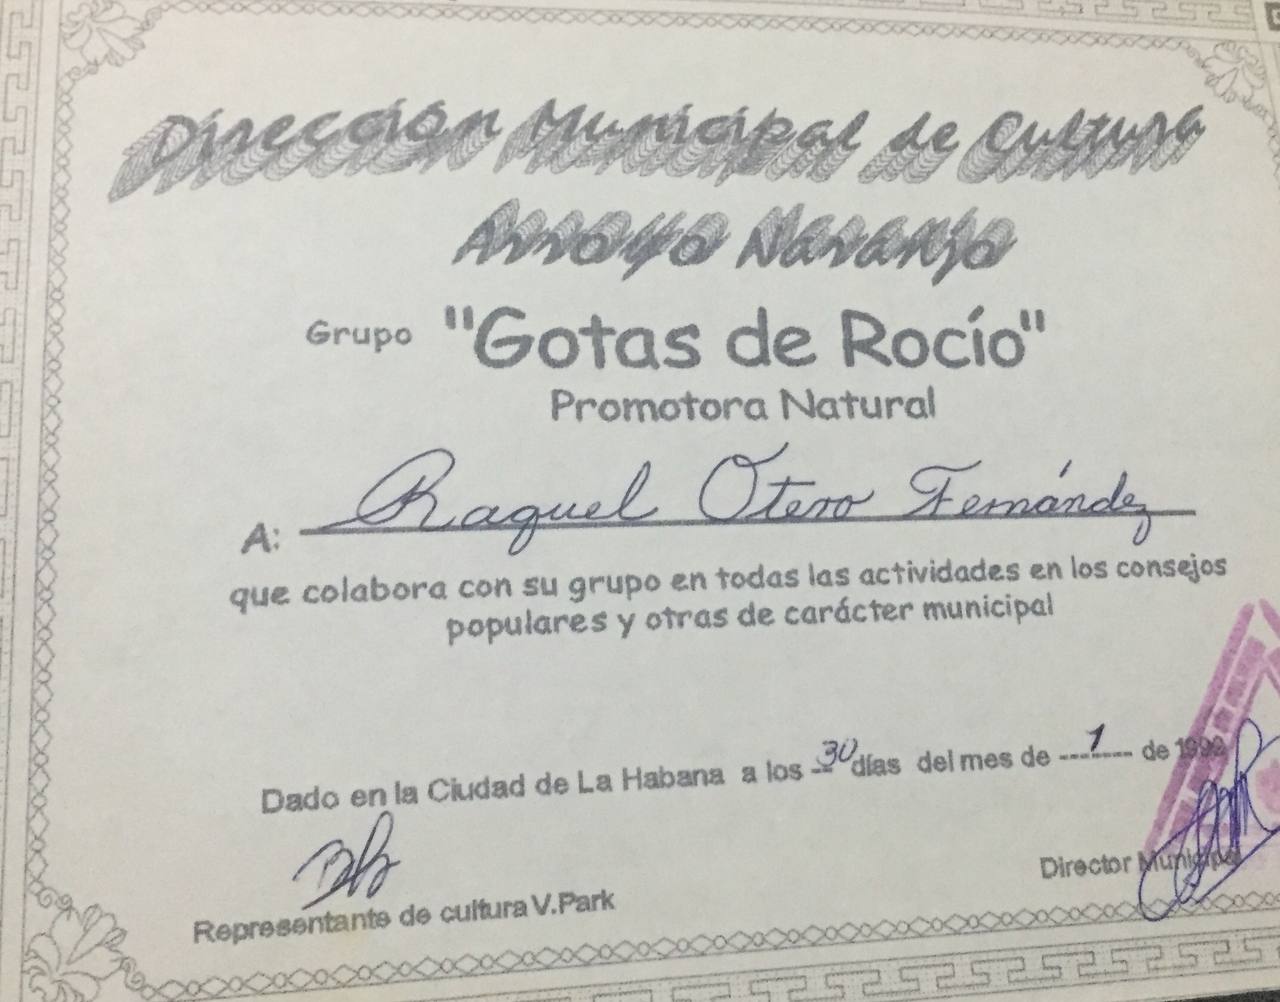 Dirección Municipal de Cultura
Arroyo Naranjo
Grupo "Gotas de Rocío"
Promotora Natural
A: Raquel Otero Fernández
que colabora con su grupo en todas las actividades en los consejos
populares y otras de carácter municipal
Dado en la Ciudad de La Habana a los 30 días del mes de 1 de
Representante de cultura V.Park
Director Municipal